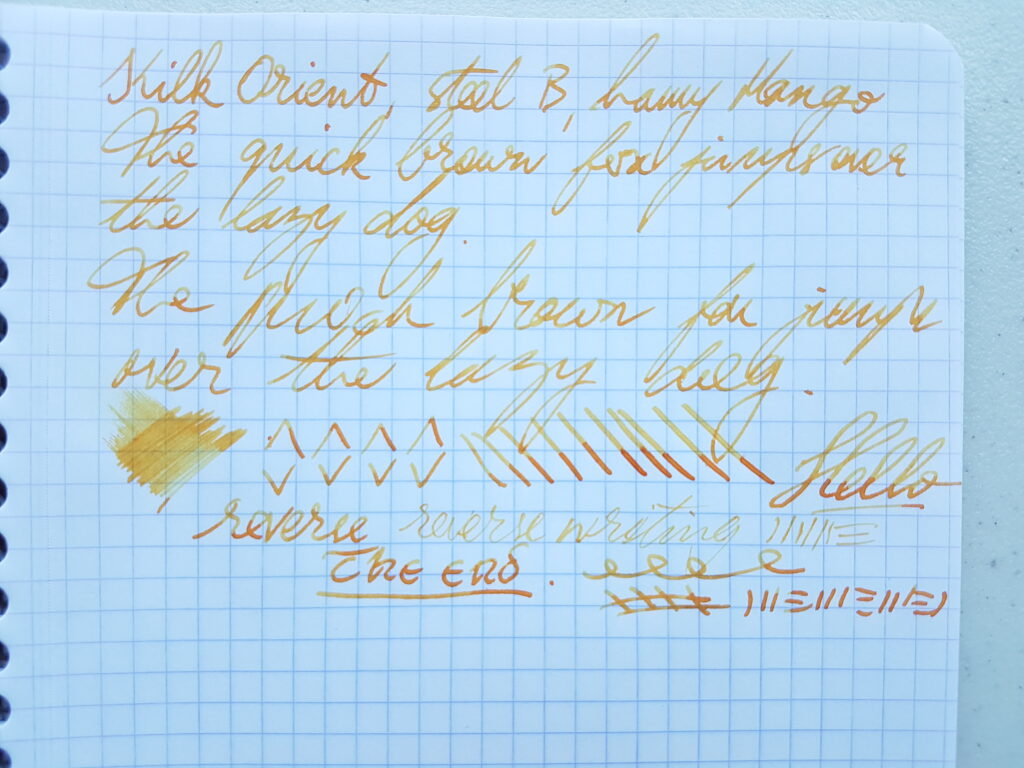 Kilk Orient, steel B, Lamy Mango
The quick brown fox jumps over
the lazy dog.
The quick brown fox jumps
over the lazy dog.
Hello
reverse reverse writing
THE END.